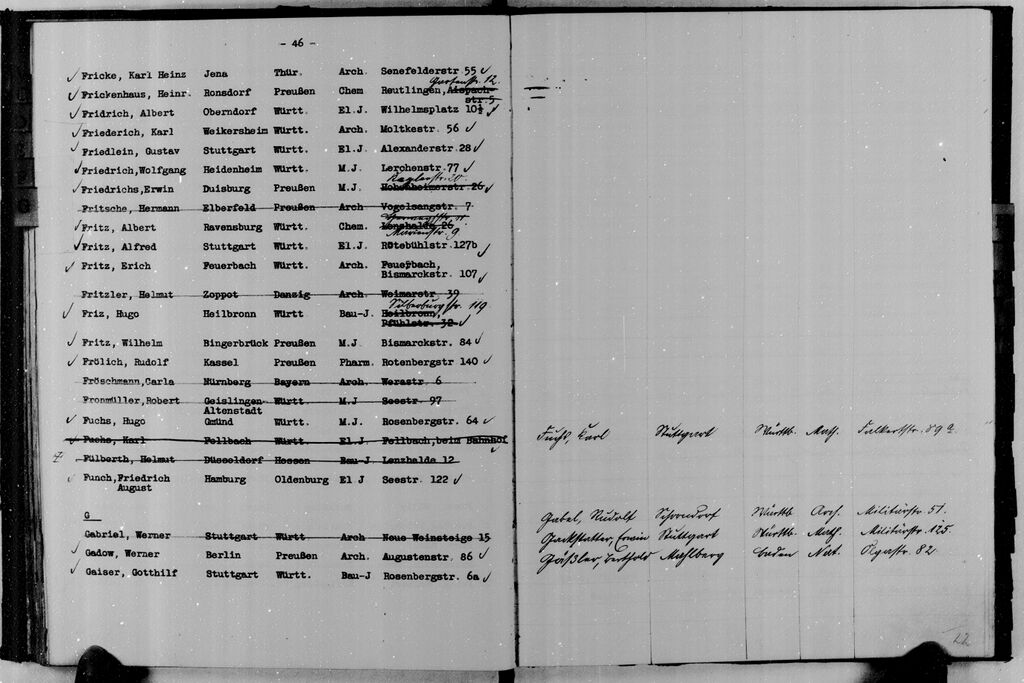 - 46 -
Fricke, Karl Heinz Jena Thür. Arch. Senefelderstr 55
Gartenstr. 12.
Frickenhaus, Heinr. Ronsdorf Preußen Chem Reutlingen, Aispach-
str.5
Fridrich, Albert Oberndorf Württ. El.J. Wilhelmsplatz 10½
Friederich, Karl Weikersheim Württ. Arch. Moltkestr. 56
Friedlein, Gustav Stuttgart Württ. El.J. Alexanderstr. 28
Friedrich,Wolfgang Heidenheim Württ. M.J. Lerchenstr.77
Friedrichs,Erwin Duisburg Preußen M.J. Hohenheimerstr 26
Fritsche, Hermann Elberfeld Preußen Arch Vogelsangstr. 7
Fritz, Albert Ravensburg Württ. Chem. Lenzhalde 26
Marienstr. 9.
Fritz, Alfred Stuttgart Württ. El.J. Rotebühlstr.127b
Fritz, Erich Feuerbach Württ. Arch. Feuerbach,
Bismarckstr. 107
Fritzler, Helmut Zoppot Danzig Arch Weimarstr 39
Silberburgstr. 119
Friz, Hugo Heilbronn Württ Bau-J. Heilbronn,
Pfühlstr. 32
Fritz, Wilhelm Bingerbrück Preußen M.J. Bismarckstr. 84
Frölich, Rudolf Kassel Preußen Pharm. Rotenbergstr 140
Fröschmann,Carla Nürnberg Bayern Arch. Werastr 6
Fronmüller,Robert Geislingen- Württ M.J Seestr 97
Altenstadt
Fuchs, Hugo Gmünd Württ. M.J. Rosenbergstr. 64
Fuchs, Karl Fellbach Württ. El.J Fellbach,beim Bahnhof Fuchs, Karl Stuttgart Württb. Math. Falkertstr. 59 a
Fülberth, Helmut Düsseldorf Hessen Bau-J Lenzhalde 12
Funch,Friedrich Hamburg Oldenburg El J Seestr. 122
August
G
Gabel, Rudolf Schorndorf Württb Arch. Militärstr. 51.
Gabriel, Werner Stuttgart Württ Arch Neue Weinsteige 15 Gackstatter, Erwin Stuttgart Württb. Math. Militärstr. 125.
Gadow, Werner Berlin Preußen Arch. Augustenstr. 86 Gäßler, Berthold Mahlberg Baden Nat. Olgastr. 82
Gaiser, Gotthilf Stuttgart Württ. Bau-J Rosenbergstr. 6a
22